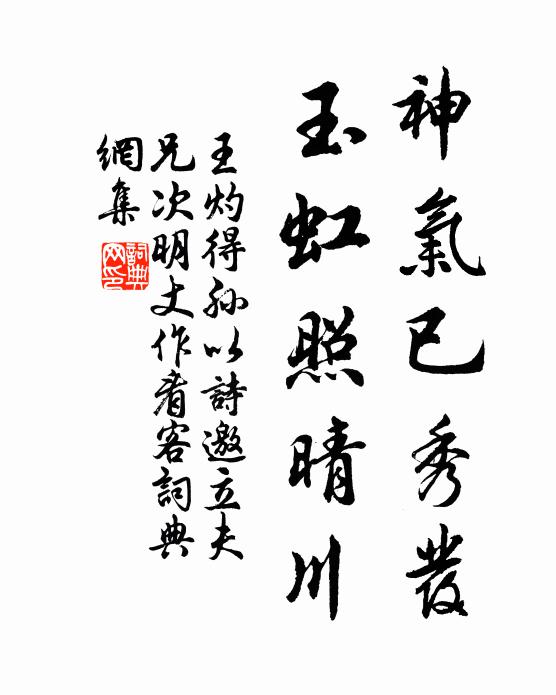 神氣已秀發
玉虹照晴川
王灼得孫以詩邀立夫
兄次明丈作看客詞典
網集
詞典
网印